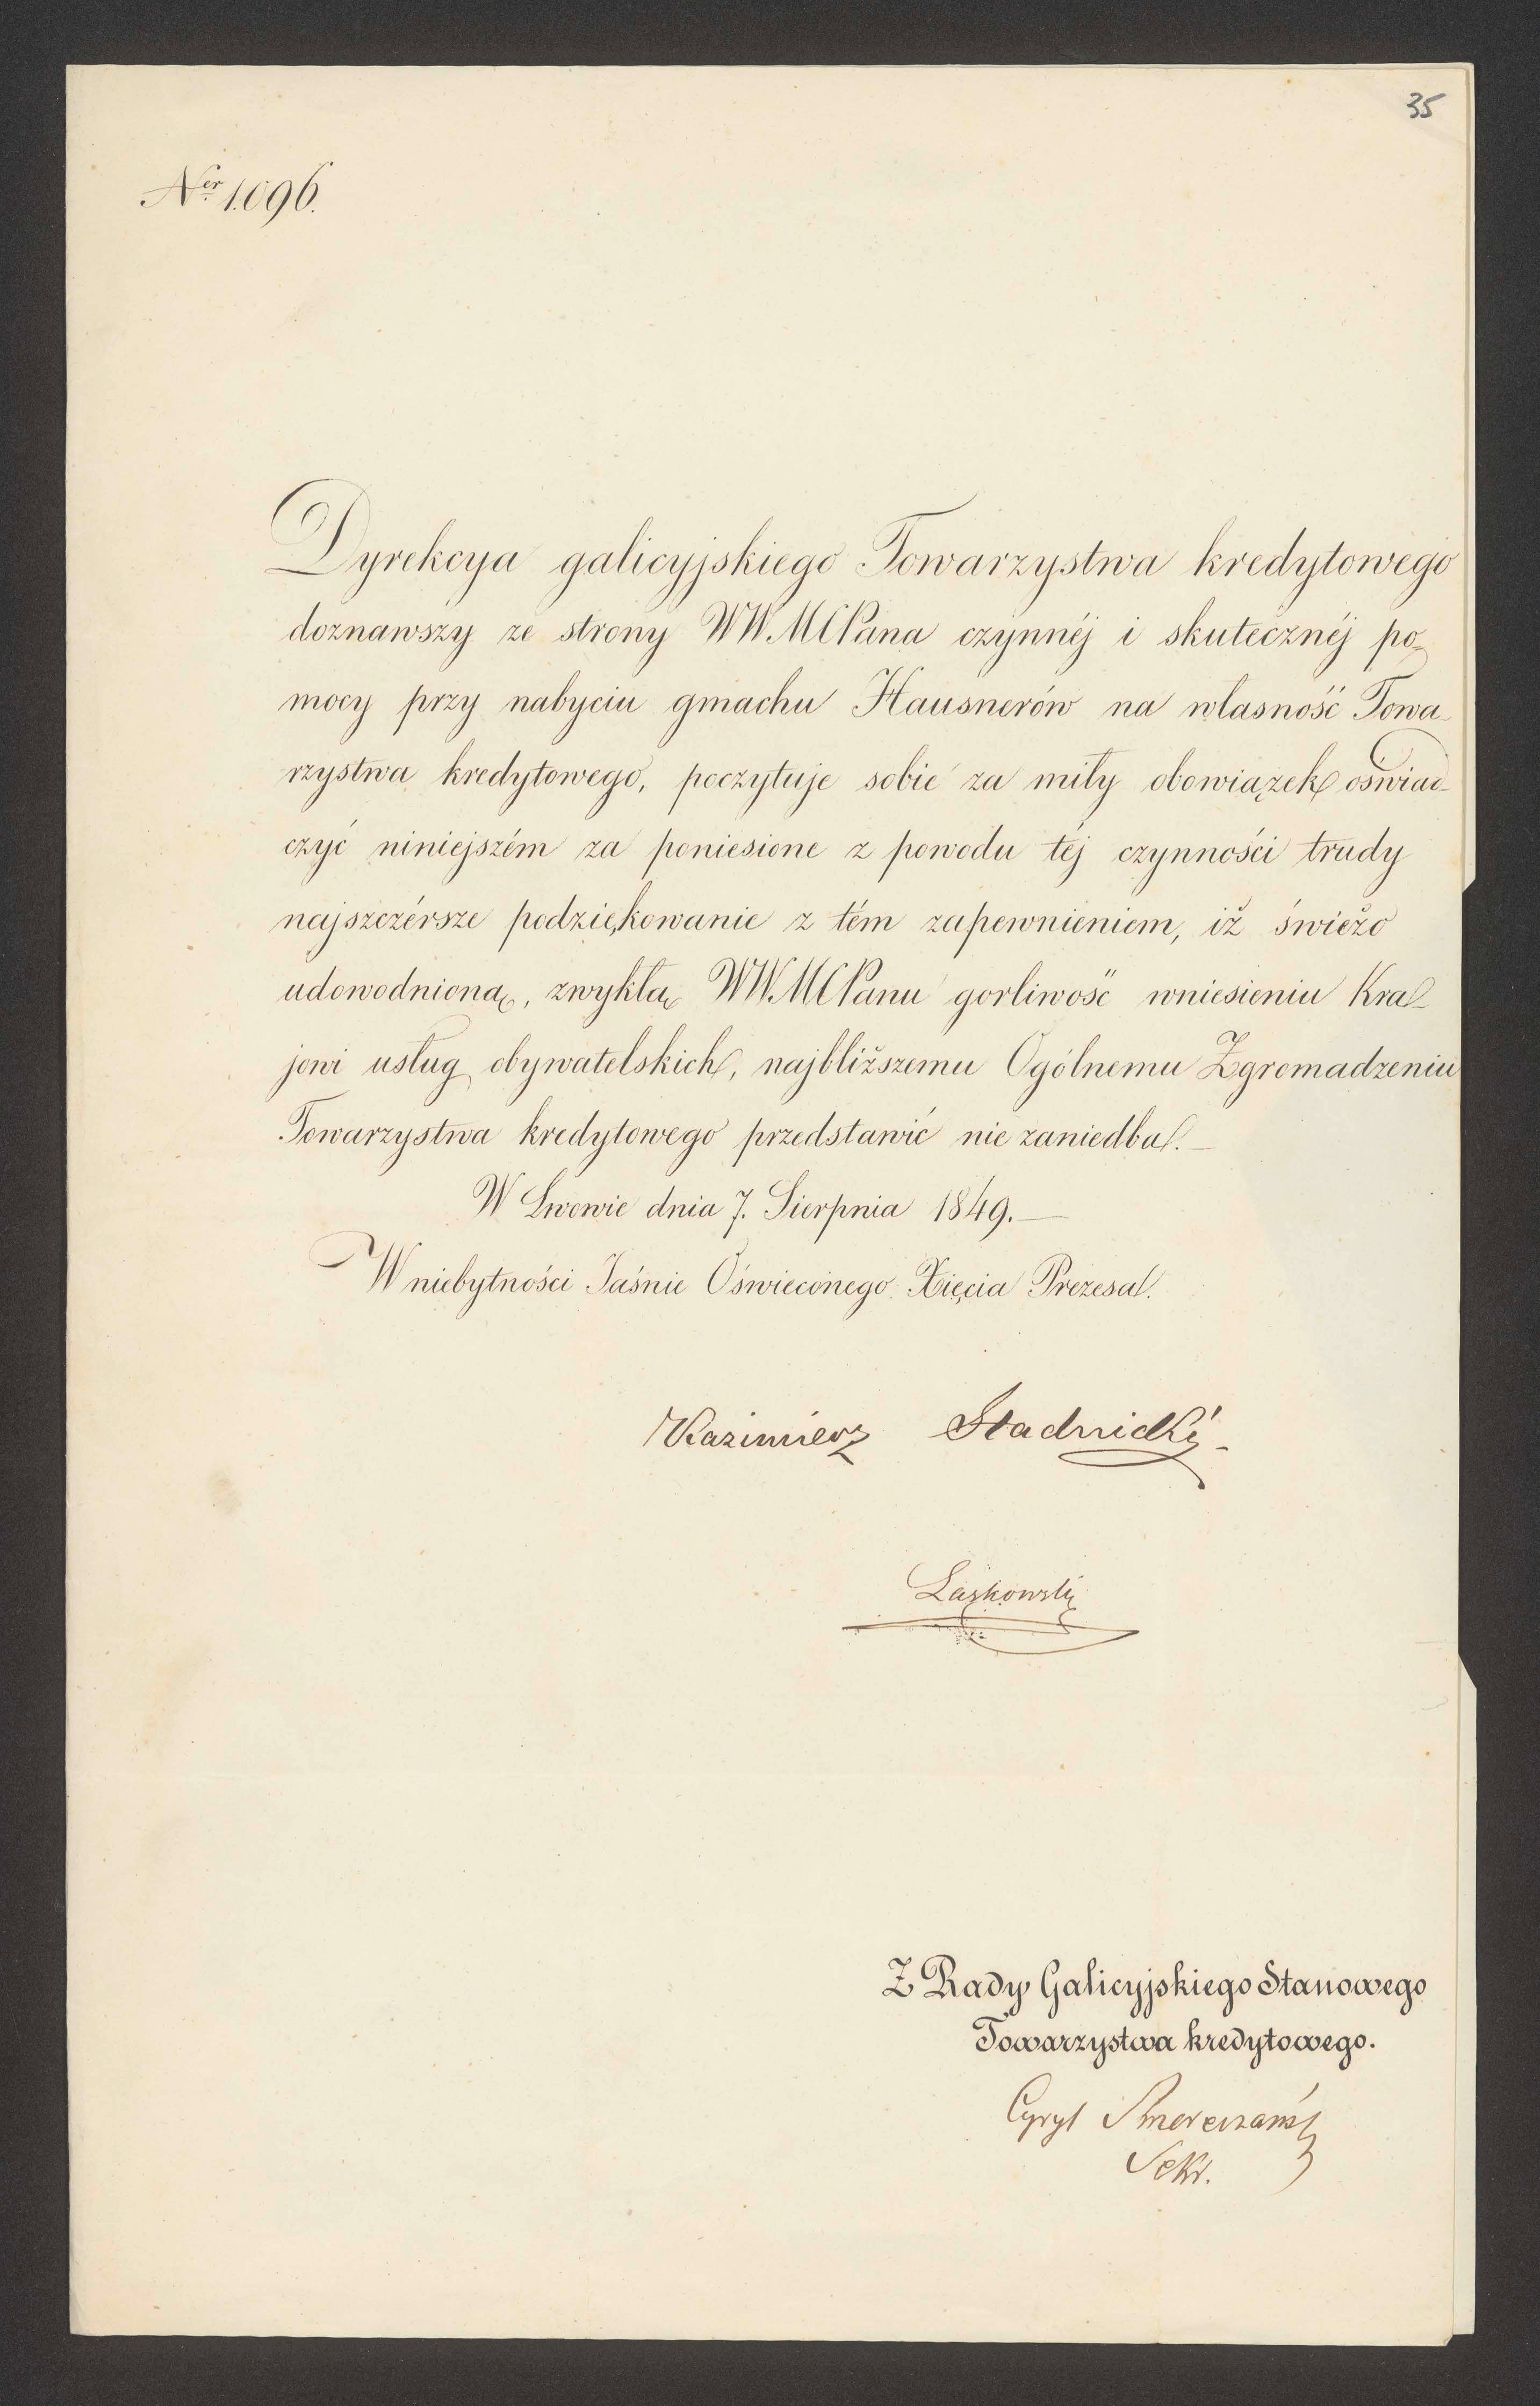 35
Nер 1.096.
Dyrekcya galicyjskiego Towarzystwa kredytowego
doznawszy ze strony WWMCPana czynnéj i skutecznéj po-
mocy przy nabyciu gmachu Hausnerów na własność Towa-
rzystwa kredytowego, poczytuje sobie za miły obowiązek oświad-
czyć niniejszém za poniesione z powodu téj czynności trudy
najszczérsze podziękowanie z tém zapewnieniem, iż świeżo
udowodnioną, zwykłą WWMCPanu gorliwość wniesieniu Kra-
jowi usług obywatelskich, najbliższemu Ogólnemu Zgromadzeniu
Towarzystwa kredytowego przedstawić nie zaniedba.—
W Lwowie dnia 7. Sierpnia 1849.—
W niebytności Jaśnie Oświeconego Xięcia Prezesa.
Kazimierz Stadnicki
Laskowski
Z Rady Galicyjskiego Stanowego
Towarzystwa kredytowego.
Cyryl
Sekr.